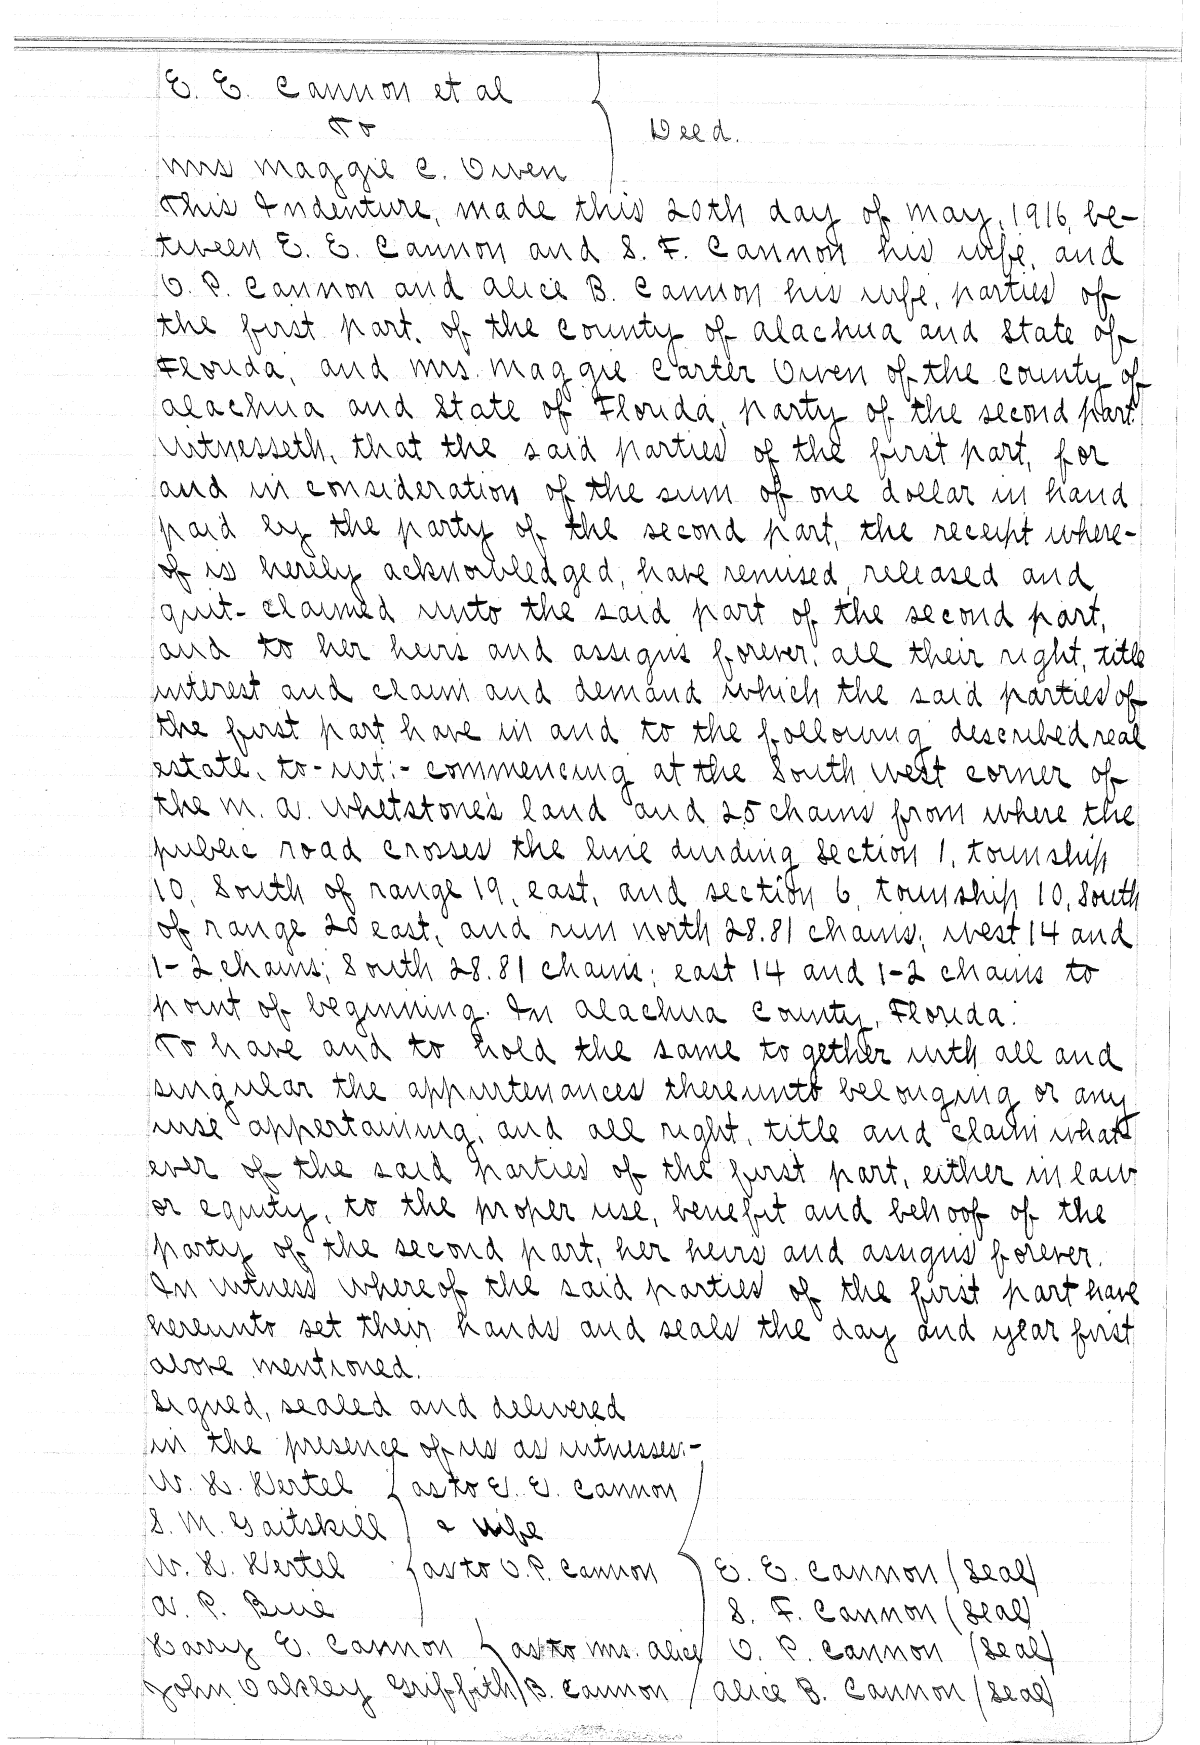 E. E. Cannon et al
To
Deed.
Mrs Maggie C. Owen
This Indenture, made this 20th day of May, 1916, be-
tween E. E. Cannon and S. F. Cannon his wife, and
O. P. Cannon and Alice B. Cannon his wife, parties of
the first part, of the County of Alachua and State of
Florida, and Mrs. Maggie Carter Owen of the County of
Alachua and State of Florida, party of the second part
Witnesseth, that the said parties of the first part, for
and in consideration of the sum of one dollar in hand
paid by the party of the second part, the receipt where-
of is hereby acknowledged, have remised, released and
quit-claimed unto the said part of the second part,
and to her heirs and assigns forever, all their right, title
interest and claim and demand which the said parties of
the first part have in and to the following described real
estate, to-wit:- commencing at the South west corner of
the M. A. Whetstone's land and 25 chains from where the
public road crosses the line dividing Section 1, township
10, South of range 19, east, and section 6, township 10, South
of range 20 east, and run north 28.81 chains; west 14 and
1-2 chains; South 28.81 chains; east 14 and 1-2 chains to
point of beginning. In Alachua County, Florida.
To have and to hold the same together with all and
singular the appurtenances thereunto belonging or any
wise appertaining, and all right, title and claim what
ever of the said parties of the first part, either in law
or equity, to the proper use, benefit and behoof of the
party of the second part, her heirs and assigns forever.
In witness whereof the said parties of the first part have
hereunto set their hands and seals the day and year first
above mentioned.
Signed, sealed and delivered
in the presence of us as witnesses:-
W. H. Hertel as to E. E. Cannon
S. M. Gaitskill & wife
W. H. Hertel as to O. P. Cannon E. E. Cannon (Seal)
A. P. Buie S. F. Cannon (Seal)
Harry E. Cannon as to Mrs. Alice O. P. Cannon (Seal)
John Oakley Griffith B. Cannon Alice B. Cannon (Seal)